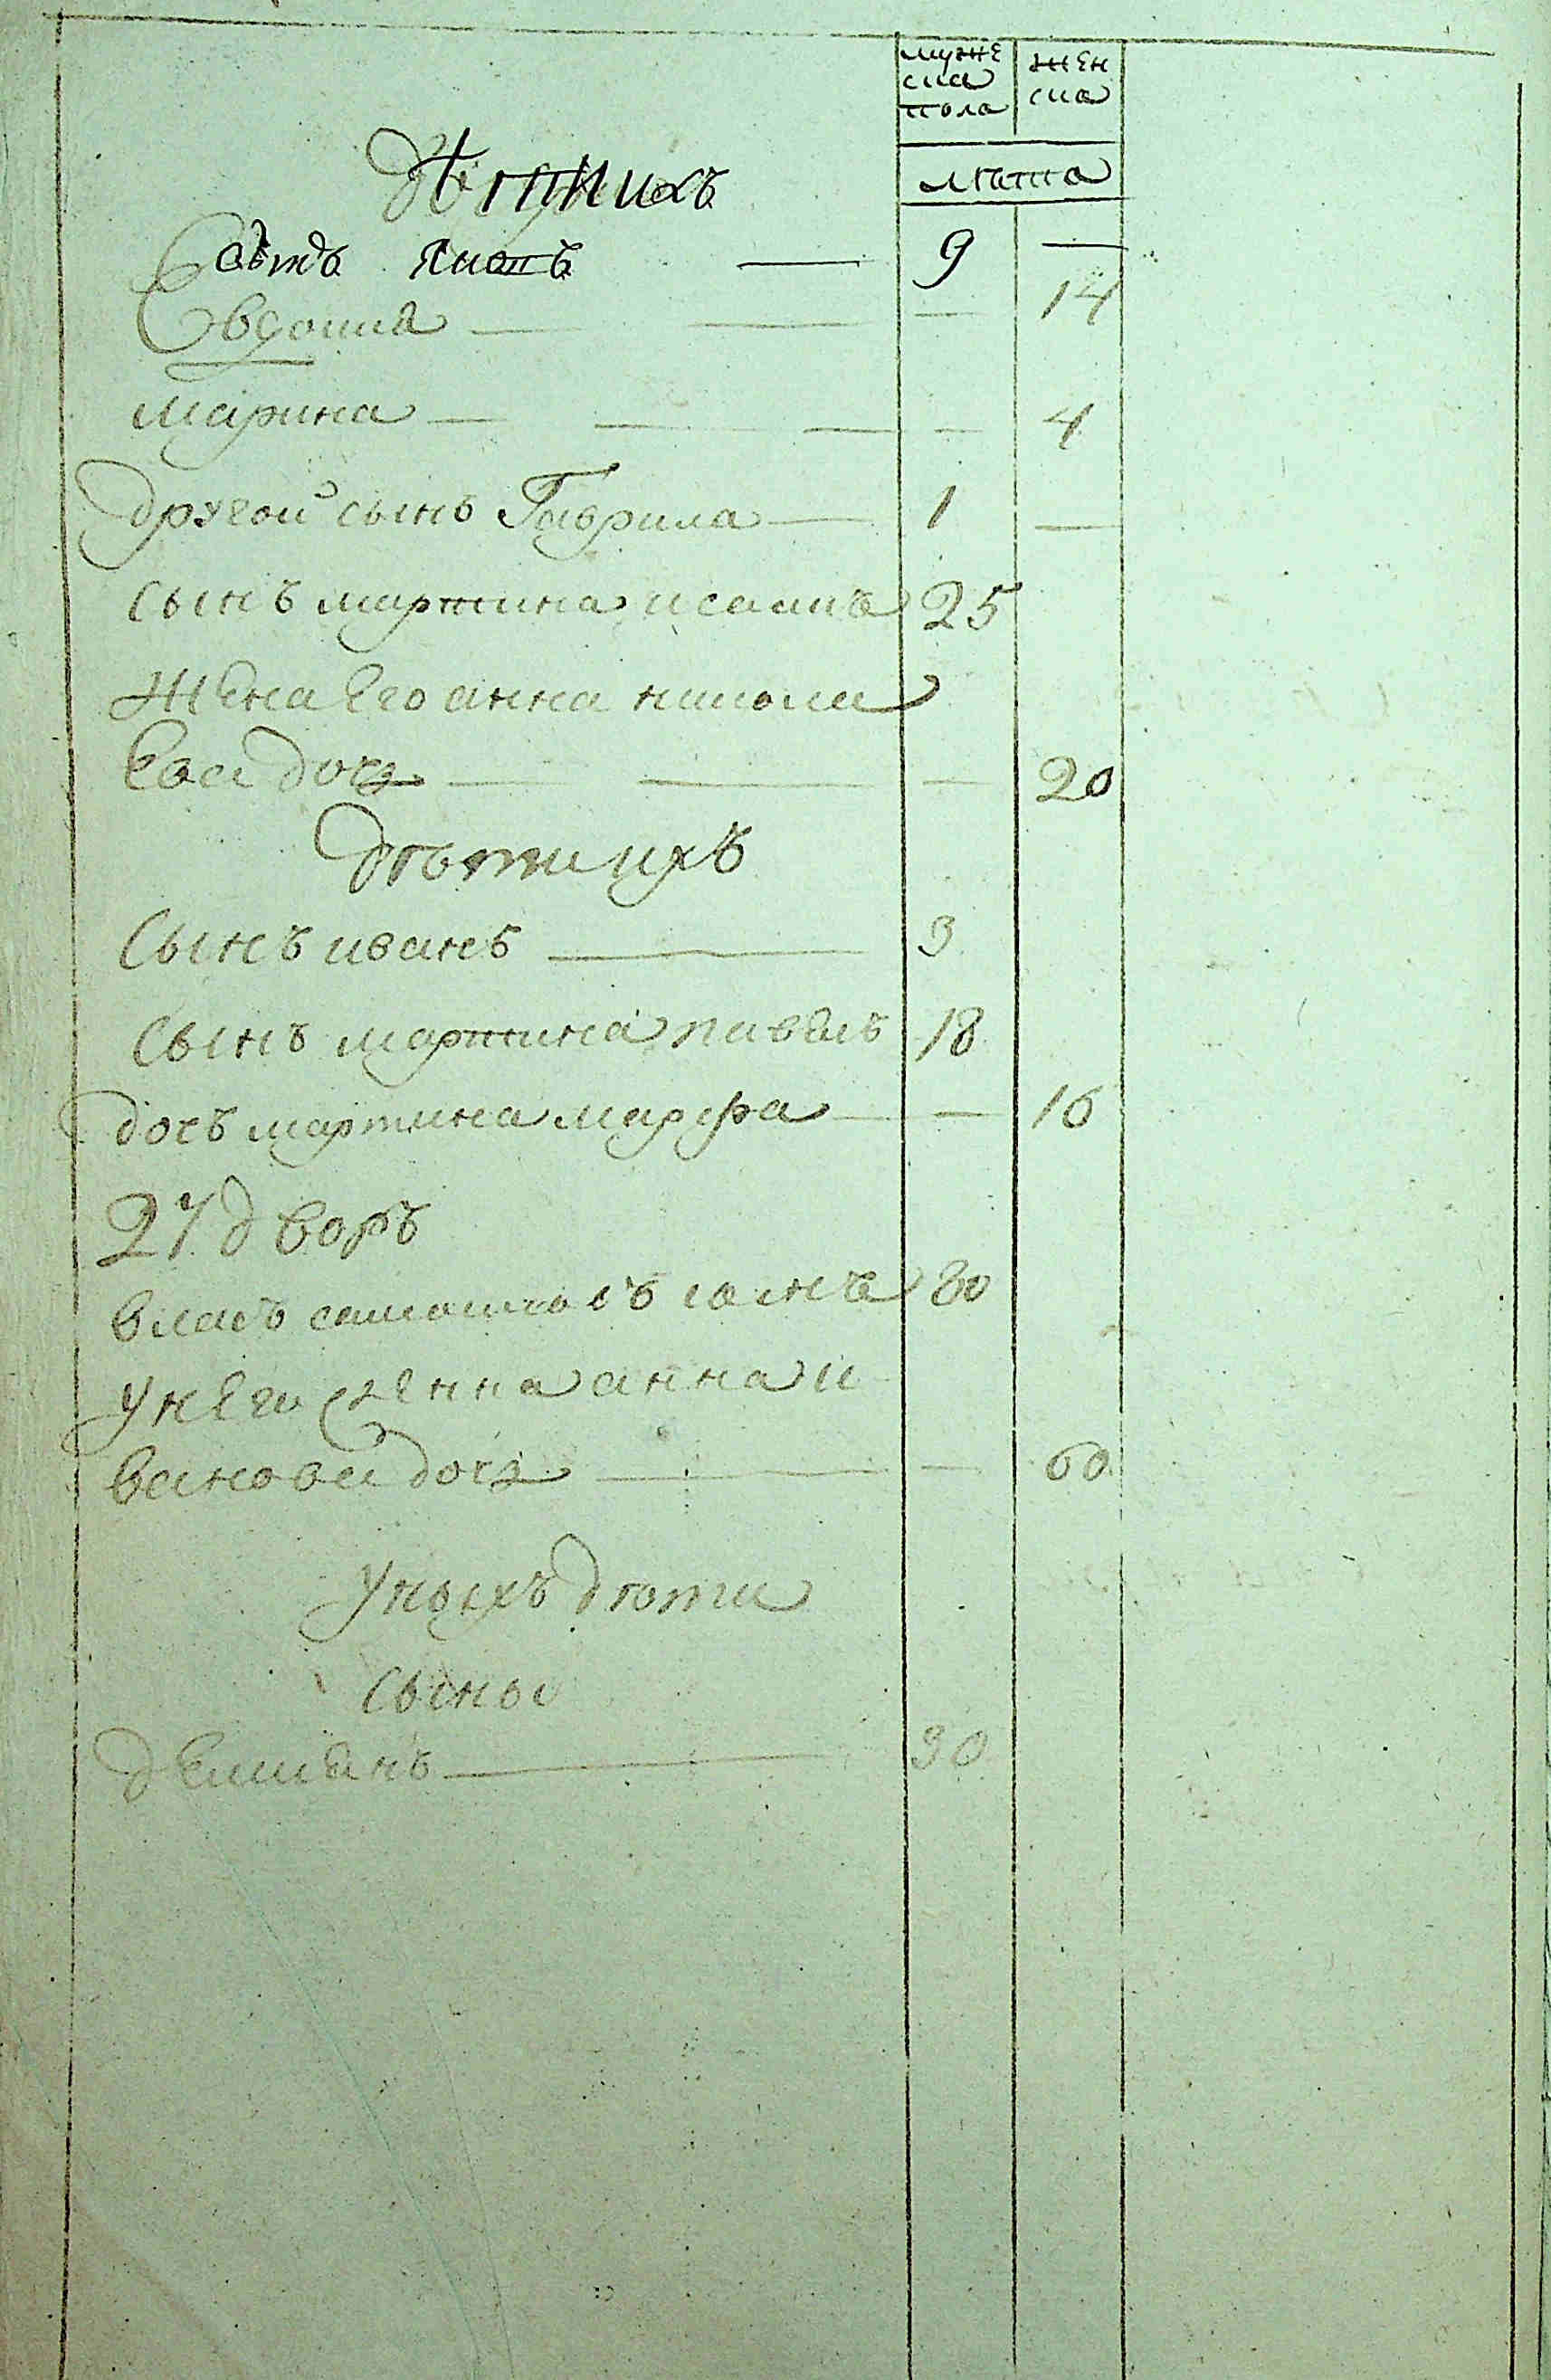 мужеска пола
женска
лѣта
Дѣти ихъ
Яковъ — 9 —
Евдокиа — — 14
Марина — — 4
другой сынъ Гаврила — 1 —
сынъ мартина исаакъ 25
жена его анна николаева дочь — — 20
дѣти ихъ
Сынъ иванъ — 3
Сынъ мартина павелъ 18
дочъ мартина марфа — — 16
27 дворъ
власъ 80
у него жена анна ивановa дочь — — 60
у ныхъ дѣти
сыны
демианъ — 30